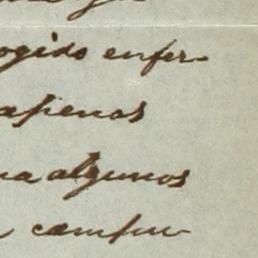 ogido enfer-
apenas
na algunos
campu-